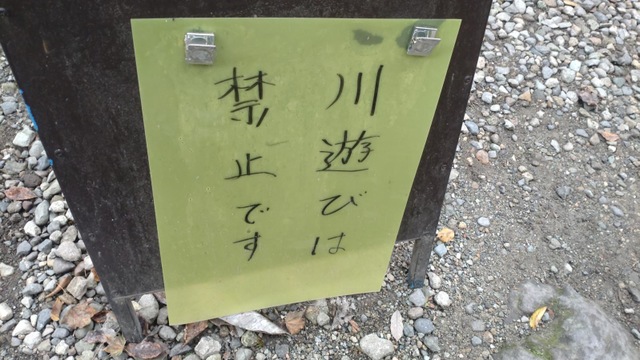 川遊びは
禁止です